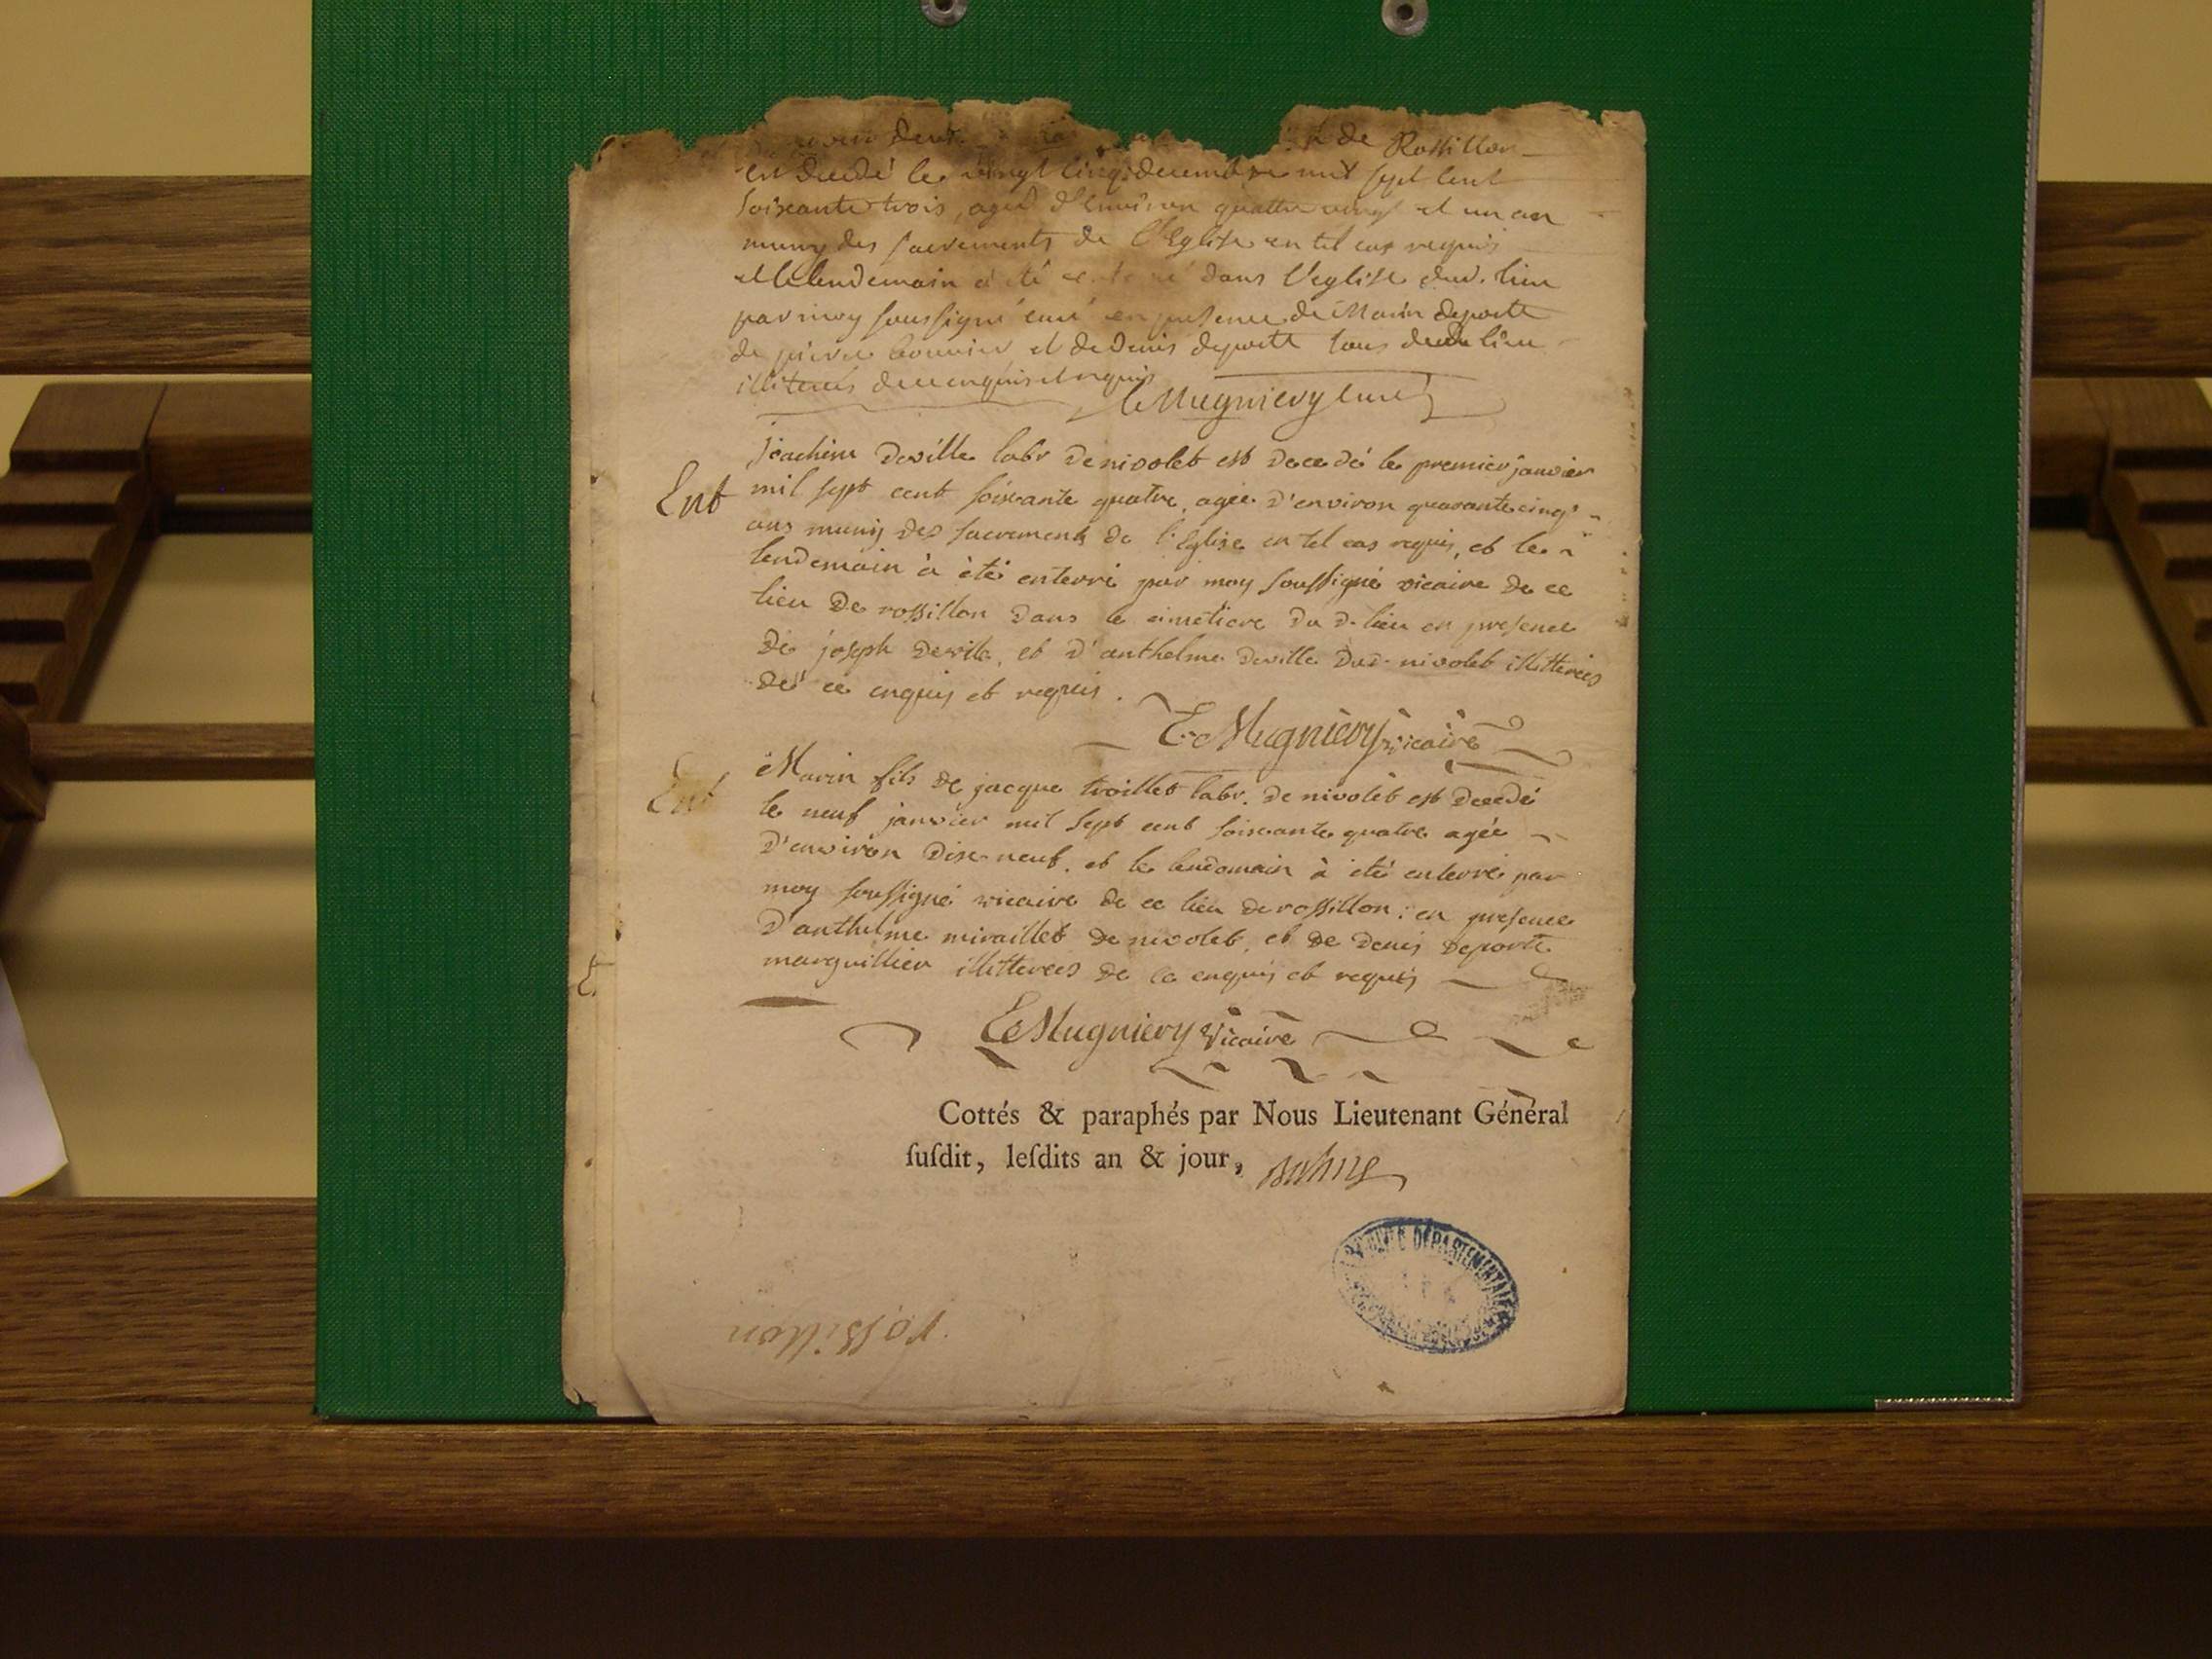 de Rossillon
est decedé le vingt cinq decembre mil sept cent
soixante trois, agé d'environ quattre vingt et un an
muny des sacrements de l'Eglise en tel cas requis
et le lendemain a été enterré dans l'eglise dud. lieu
par moy soussigné curé en presence de Marin deporte
de pierre bouvier et de Denis deporte tous dudit lieu
illiterés de ce enquis et requis
Mugniery curé
Ent
joachim Deville labr de nivolet est decedé le premier janvier
mil sept cent soixante quatre, agée d'environ quarante cinq
ans munis des sacrements de l'Eglise en tel cas requis, et le
lendemain à été enterré par moy soussigné vicaire de ce
lieu de rossillon dans le cimetiere du d. lieu en presence
de joseph deville, et d'anthelme deville dud. nivolet illitterées
de ce enquis et requis.
Mugniery vicaire
Ent
Marin fils de jacque troillet labr. de nivolet est decedé
le neuf janvier mil sept cent soixante quatre agée
d'environ dix neuf. et le lendemain à été enterré par
moy soussigné vicaire de ce lieu de rossillon: en presence
d'anthelme miraillet de nivolet, et de denis deporte
marguillier illitterees de ce enquis et requis
Mugniery vicaire
Cottés & paraphés par Nous Lieutenant Général
ſuſdit, leſdits an & jour,
DÉPARTEMENTALES
rossillon